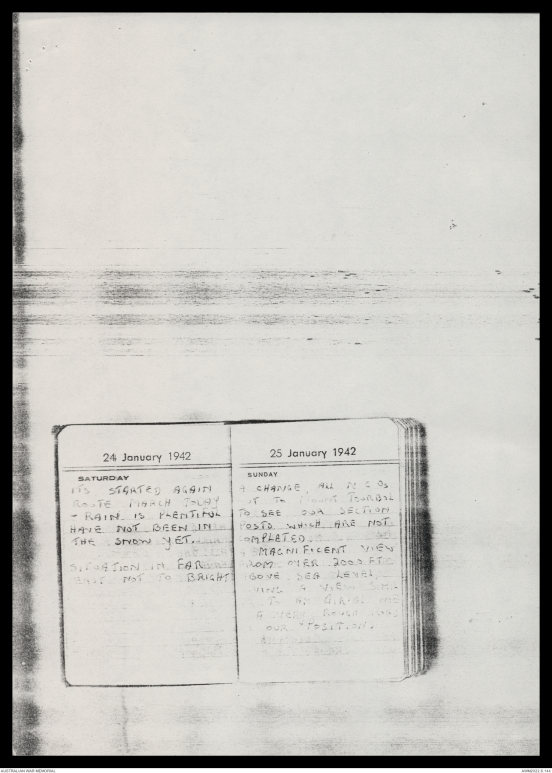 24 January 1942
SATURDAY
ITS STARTED AGAIN
ROUTE MARCH TODAY
- RAIN IS PLENTIFUL
HAVE NOT BEEN IN
THE SNOW YET.
SITUATION IN FAR
EAST NOT TO BRIGHT
25 January 1942
SUNDAY
A CHANGE, ALL N.C.Os
TO MOUNT TOURBUL
TO SEE OUR SECTION
POSTS WHICH ARE NOT
OMPLETED.
A MAGNIFICENT VIEW
ROM OVER 2000 FT
BOVE SEA LEVEL
A VERY ROUGH
OUR POSITION.
AUSTRALIAN WAR MEMORIAL